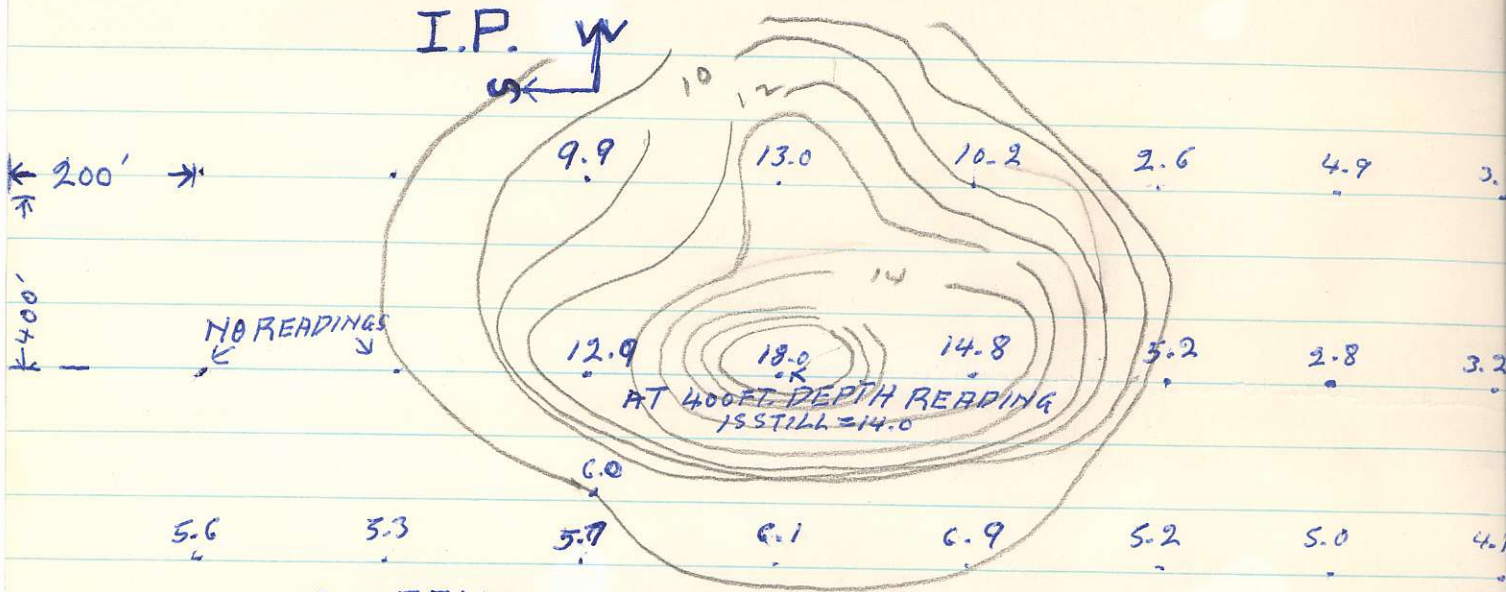 I.P. W
S
10
12
200' 9.9 13.0 10.2 2.6 4.9 3.
14
400'
NO READINGS
12.9 18.0 14.8 5.2 2.8 3.2
AT 400FT. DEPTH READING
IS STILL = 14.0
6.0
5.6 5.3 5.7 6.1 6.9 5.2 5.0 4.1